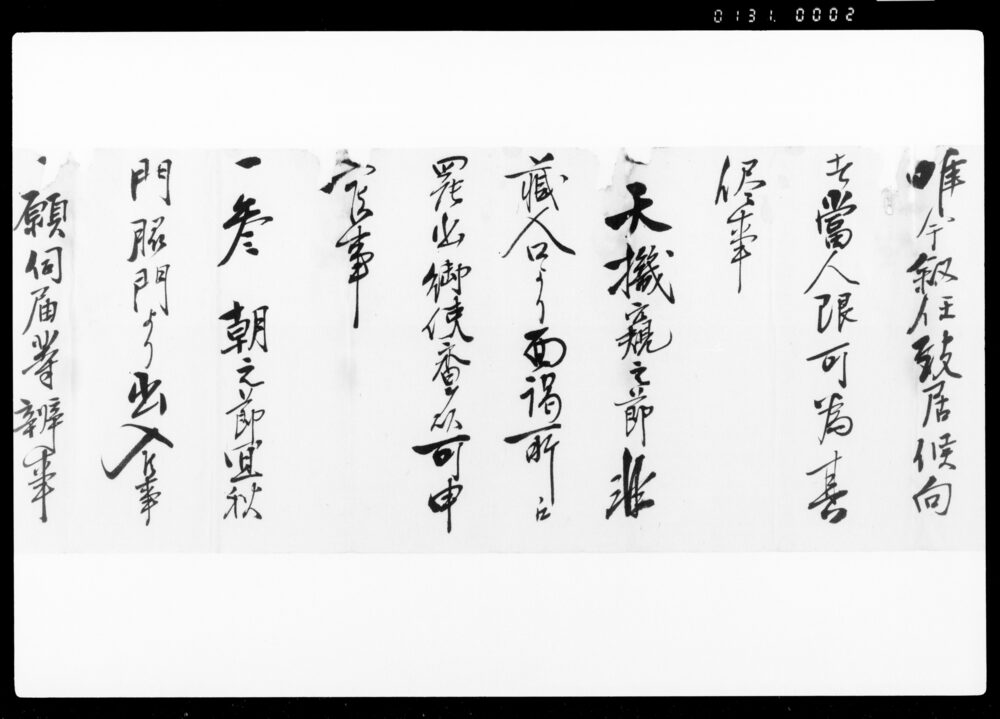 0131.0002
唯今叙任致居候向
者當人限可為其
侭事
一天機窺之節非
藏人口より面謁所江
罷出御使番以可申
事
一参 朝之節宜秋
門脇門より出入事
一願伺届等辨事